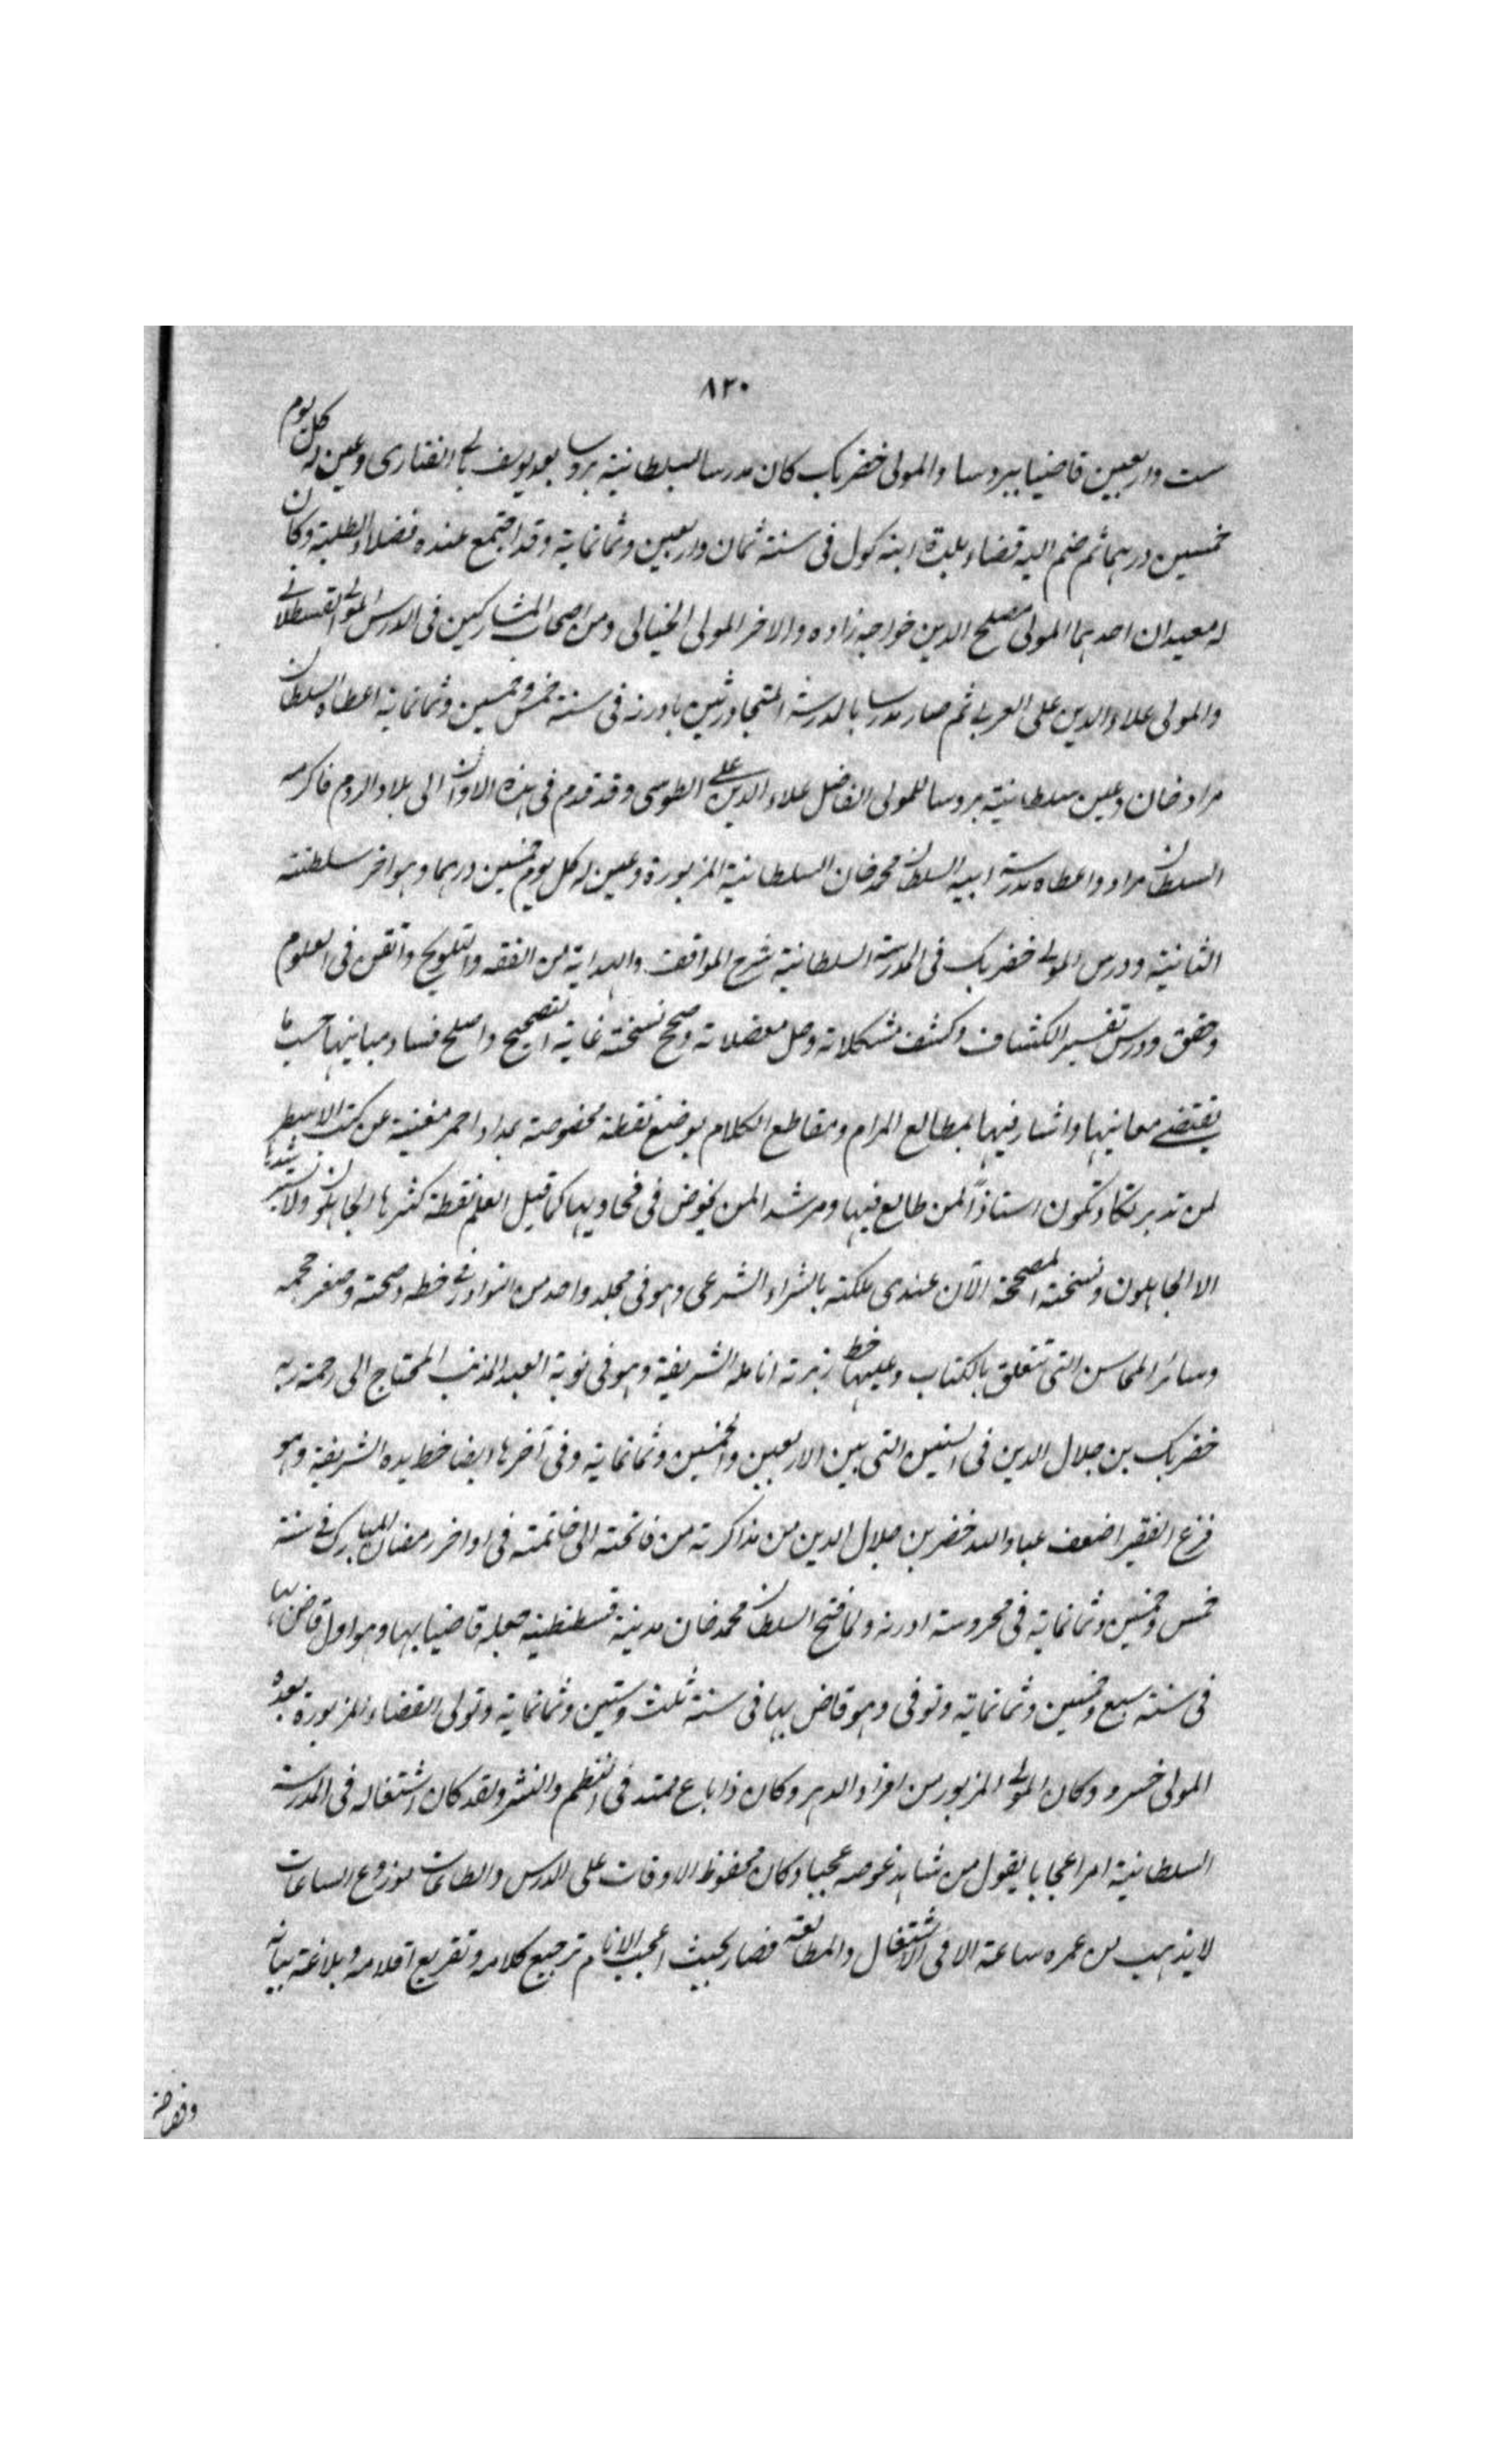 ٨٢٠
ست واربعين قاضيا ببروسا والمولى خضربك كان مدرسا بسلطانية بروسا بعد يوسف بالي الفناري وعين له كل يوم
خمسين درهما ثم ضم اليه قضاء بلدة اينه كول في سنة ثمان واربعين وثمانماية وقد اجتمع عنده فضلاء الطلبة وكان
له معيدان احدهما المولى مصلح الدين خواجه زاده والاخر المولى الخيالى ومن اصحاب المشاركين في الدرس المولى القسطلاني
والمولى علاء الدين على العربي ثم صار مدرسا بالمدرسة المتجاورتين بادرنه في سنة خمس وخمسين وثمانماية اعطاه السلطان
مراد خان وعين سلطانية بروسا للمولى الفاضل علاء الدين على الطوسي وقد قدم في هذه الاوان الى بلاد الروم فاكرمه
السلطان مراد واعطاه مدرسة ابيه السلطان محمد خان السلطانية المزبورة وعين له كل يوم خمسين درهما وهو اخر سلطنته
الثانية ودرس المولى خضربك في المدرسة السلطانية شرح المواقف والهداية من الفقه والتلويح واتقن في العلوم
وحقق ودرس تفسير الكشاف وكشف مشكلاته وحل معضلاته وصحح نسخته غاية التصحيح واصلح فساد مبانيها حسب ما
يقتضى معانيها واشار فيها بمطالع المرام ومقاطع الكلام بوضع نقطة مخصوصة بمداد احمر مغنية عن كتب الاسطر
لمن تدبر تكاد تكون استاذاً لمن طالع فيها ومرشدا لمن يخوض في فحاويها كما قيل العلم نقطة كثرها الجاهلون ولا
الا الجاهلون ونسخته المصححة الآن عندى ملكته بالشراء الشرعى وهو في مجلد واحد من النوادر في خطه وصحته وصغر حجمه
وسائر المحاسن التى تتعلق بالكتاب وعليها خط زبرته انامله الشريفة وهو في نوبة العبد المذنب المحتاج الى رحمة ربه
خضربك بن جلال الدين في السنين التى بين الاربعين والخمسين وثمانماية وفي آخرها ايضا خط يده الشريفة وهو
فرغ الفقير اضعف عباد الله خضر بن جلال الدين من مذاكرته من فاتحته الى خاتمته في اواخر رمضان المبارك في سنة
خمس وخمسين وثمانماية في محروسة ادرنه ولما فتح السلطان محمد خان مدينة قسطنطينية جعله قاضيا بها وهو اول قاض بها
في سنة سبع وخمسين وثمانماية وتوفى وهو قاض بها في سنة ثلث وستين وثمانماية وتولى القضاء المزبورة بعده
المولى خسرو وكان المولى المزبور من افراد الدهر وكان ذا باع ممتد في النظم والنثر ولقد كان اشتغاله في المدرسة
السلطانية امرا عجابا يقول من شاهد غوصه عجبا وكان محفوظ الاوقات على الدرس والطاعات موزوع الساعات
لا يذهب من عمره ساعة الا في الاشتغال والمطالعة فصار بحيث اعجب الانام ترجيع كلامه وتقريع اقلامه وبلاغة بيانه